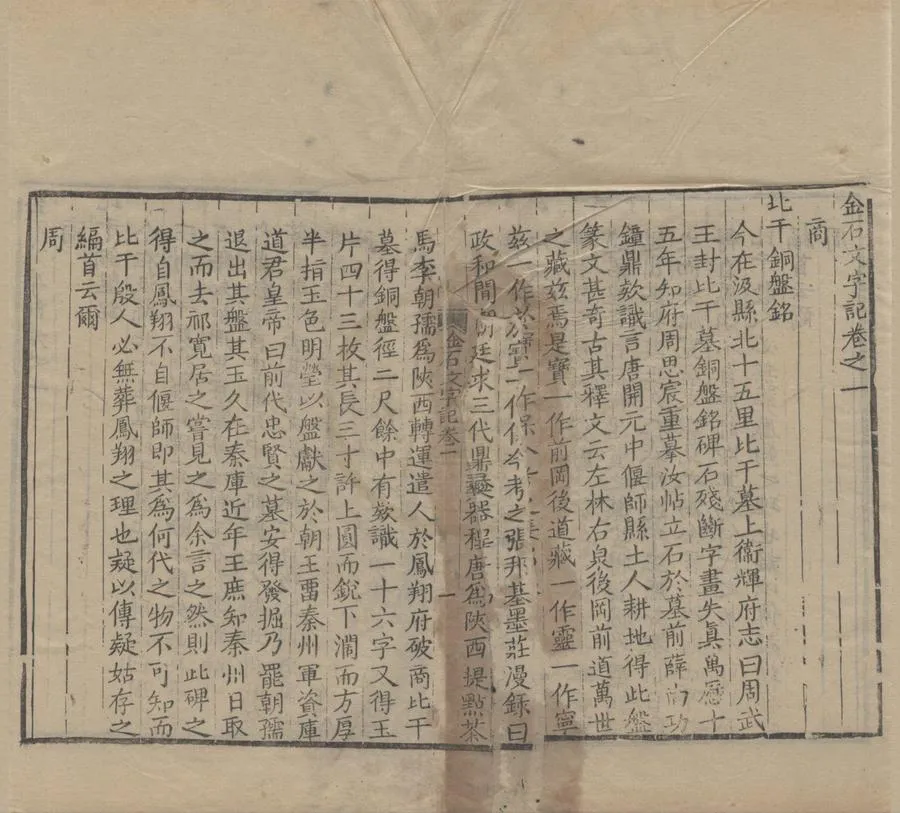 金石文字記卷之一
商
比干銅盤銘
今在汲縣北十五里比干墓上衞輝府志曰周武
王封比干墓銅盤銘碑石殘斷字畫失眞萬曆十
五年知府周思宸重摹汝帖立石於墓前薛尚功
鐘鼎欵識言唐開元中偃師縣土人耕地得此盤
篆文甚奇古其釋文云左林右泉後岡前道萬世
之藏兹焉是寶一作前岡後道藏一作靈一作寧
兹一作於寶一作保今考之張邦基墨莊漫録曰
政和間朝廷求三代鼎彞器程唐爲陝西提點茶
金石文字記卷一
一
馬李朝孺爲陝西轉運遣人於鳳翔府破商比干
墓得銅盤徑二尺餘中有欵識一十六字又得玉
片四十三枚其長三寸許上圓而銳下濶而方厚
半指玉色明瑩以盤獻之於朝玉畱秦州軍資庫
道君皇帝曰前代忠賢之墓安得發掘乃罷朝孺
退出其盤其玉久在秦庫近年王庶知秦州日取
之而去祁寬居之嘗見之爲余言之然則此碑之
得自鳳翔不自偃師即其爲何代之物不可知而
比干殷人必無葬鳳翔之理也疑以傳疑姑存之
編首云爾
周